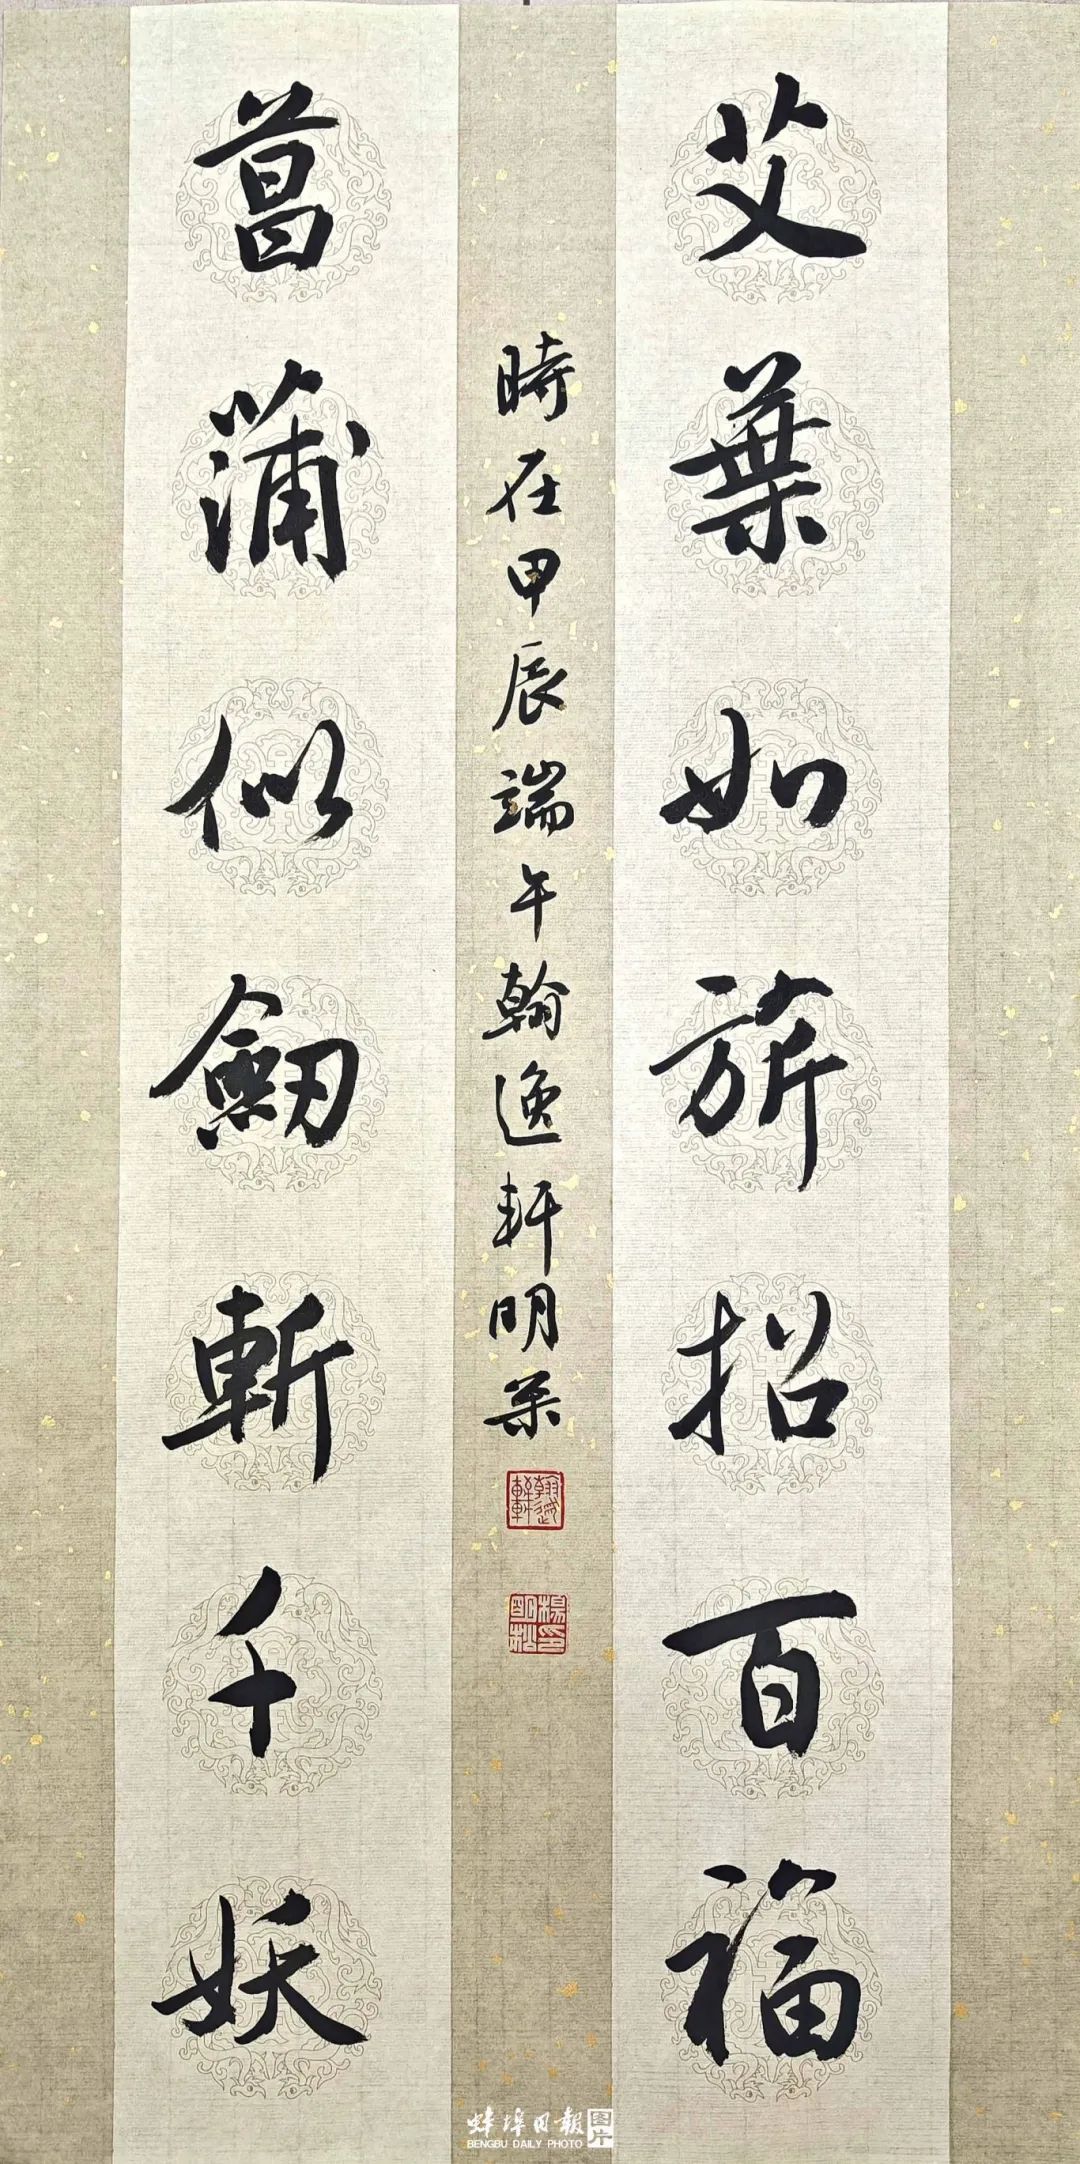 艾葉如旂招百福
菖蒲似劍斬千妖
時在甲辰端午翰逸軒明
翰逸軒
楊明松印
蚌埠日報 图片
BENGBU DAILY PHOTO